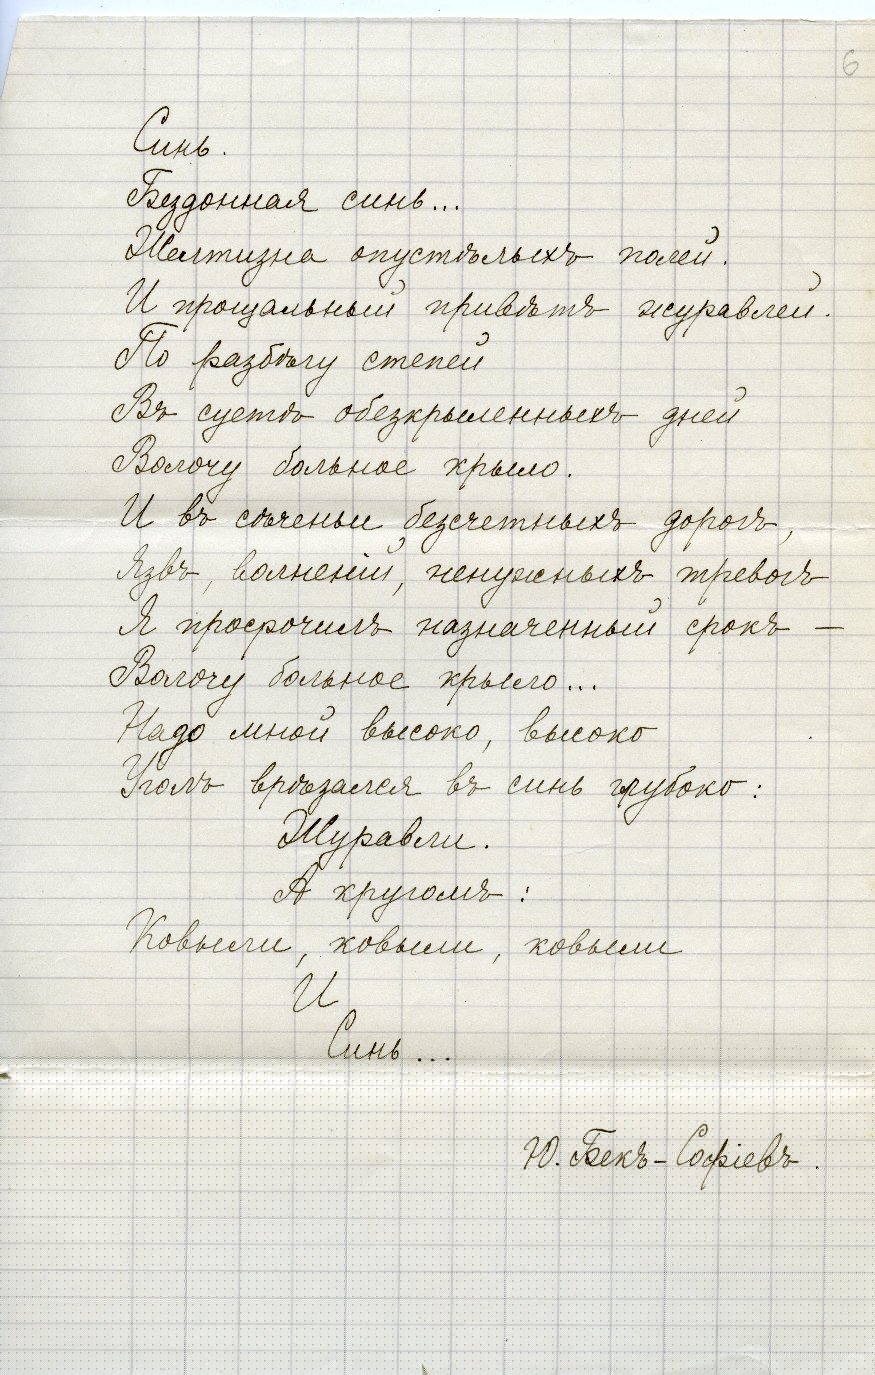 6
Синь.
Бездонная синь...
Желтизна опустѣлыхъ полей.
И прощальный привѣтъ журавлей.
По разбѣгу степей
Въ суетѣ обезкрыленныхъ дней
Волочу больное крыло.
И въ сѣченьи безсчетныхъ дорогъ,
Язвъ, волненій, ненужныхъ тревогъ
Я просрочилъ назначенный срокъ —
Волочу больное крыло...
Надо мной высоко, высоко
Уголъ врѣзался въ синь глубоко:
Журавли.
А кругомъ:
Ковыли, ковыли, ковыли
И
Синь...
Ю. Бекъ-Софіевъ.